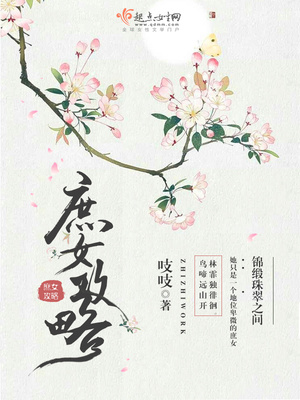 起点女生网
www.qdmm.com
全球女性文学门户
锦缎珠翠之间
她只是一个地位卑微的庶女
林霏独徘徊。
鸟啼远山开
ZHIZHIWORK
吱吱 著
庶女攻略
庶女
攻略